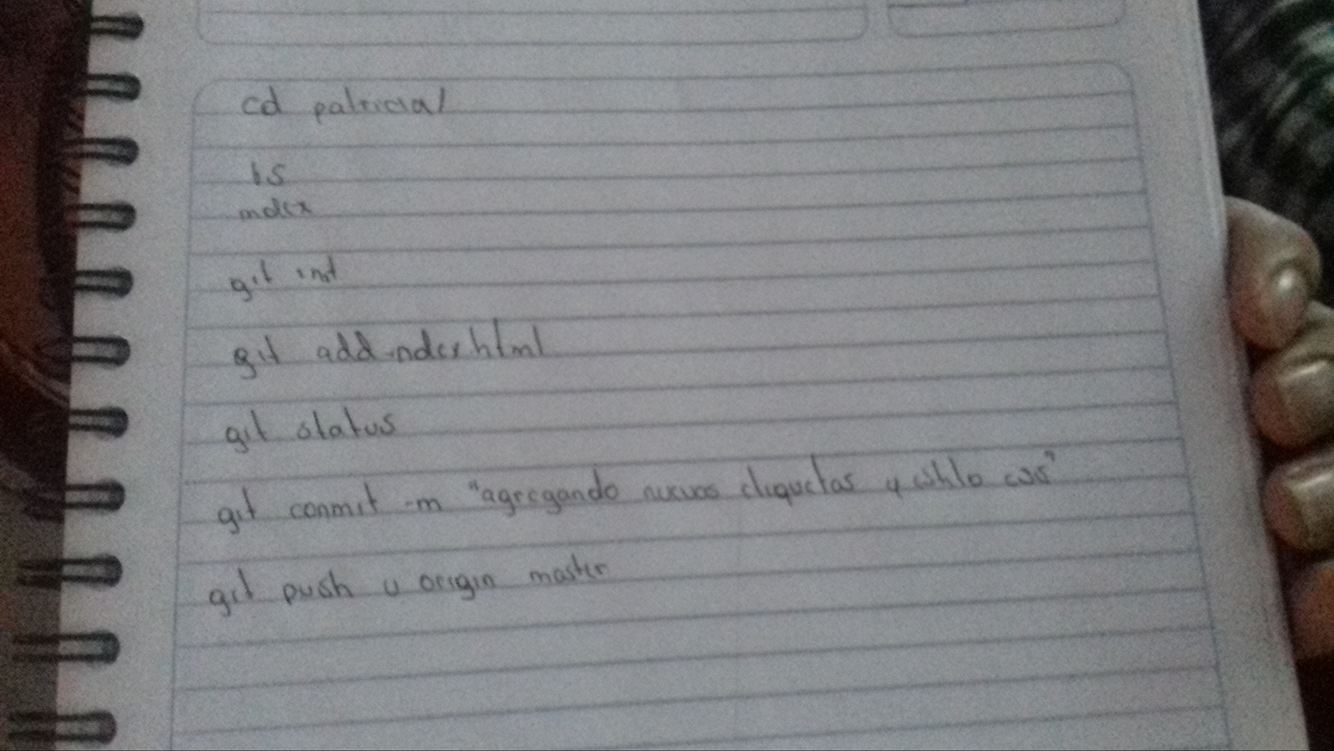 cd patricia/
ls
index
git init
git add index.html
git status
git commit -m "agregando nuevos etiquetas y estilo css"
git push u origin master